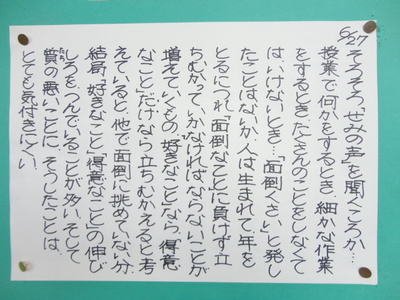 6/27
そろそろ「せみの声」を聞くころか…
授業で何かをするとき、細かな作業
をするとき、たくさんのことをしなくて
は、いけないとき…「面倒くさい」と発し
たことはないか。人は生まれて、年を
とるにつれ「面倒なことに負けず立
ちむかって」いかなければならないことが
増えていくもの。「好きなこと」なら、「得意
なこと」だけなら立ちむかえると考
えていると、他で面倒に挑めていない分、
結局、「好きなこと」「得意なこと」の伸び
しろを、つんでいることが多い。そして
質の悪いことに、そうしたことは、
たち
とても気付きにくい。